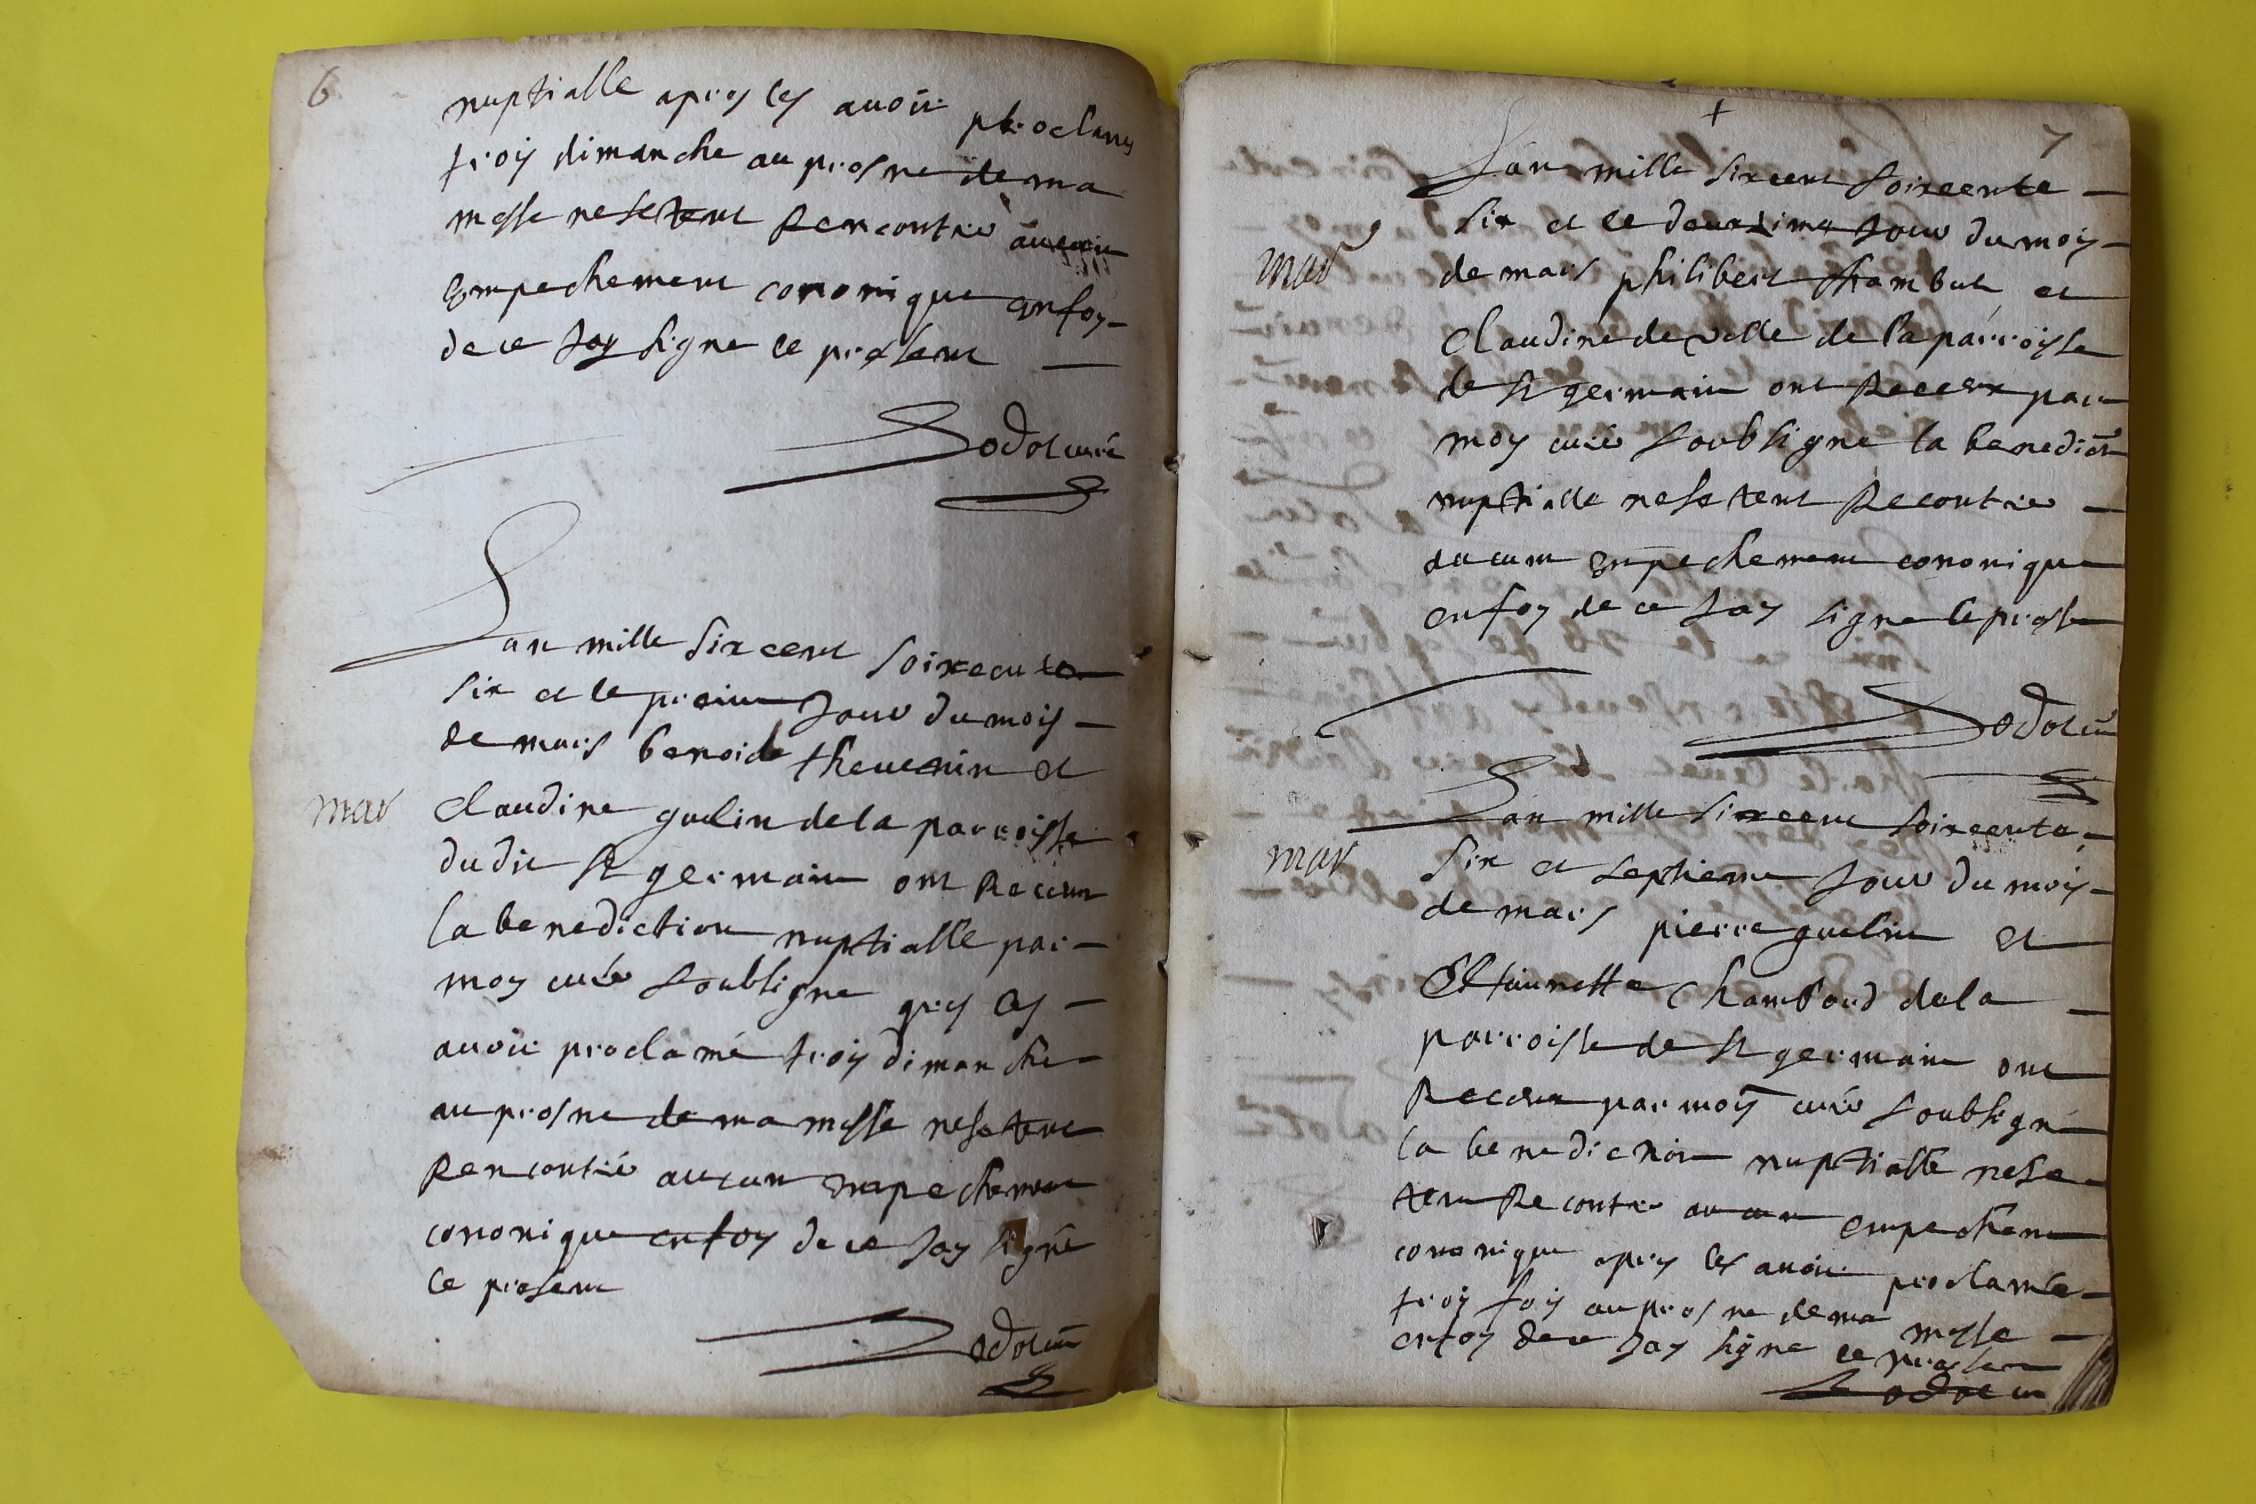 6
nuptialle apres les avoir proclames
trois dimanche au prosne de ma
messe ne sestent Rencontré aucun
Empechement cononique en foy
de ce Jay signe le present
Sodot curé
Lan mille six cent soixcente
six et le premier Jour du mois
de mars benoid thevenin et
mar
claudine guelin de la parroisse
du dit st germain ont Receux
la benediction nuptialle par
moy curé soubsigne apres les
avoir proclamé trois dimanche
au prosne de ma messe ne sestent
Rencontré aucun empechement
cononique en foy de ce Jay signé
le present
Sodot curé
7
Lan mille six cent soixcente
six et le deuxsime Jour du mois
mar
de mars philibert Chambut et
claudine de ville de la parroisse
de st germain ont Receux par
moy curé soubsigne la benedicon
nuptialle ne sestent Recontré
aucum empechement cononique
en foy de ce Jay signe le presen
Sodot cu
Lan mille six cent soixcente
mar
six et septieme Jour du mois
de mars pierre guelin et
Estiennette Chambord de la
parroisse de st germain ont
Receux par moy curé soubsigné
la benediction nuptialle ne ses
tent Recontré aucun empechem
cononique apres les avoir proclamée
trois fois au prosne de ma messe
en foy de ce Jay signe le presen
Sodot cu